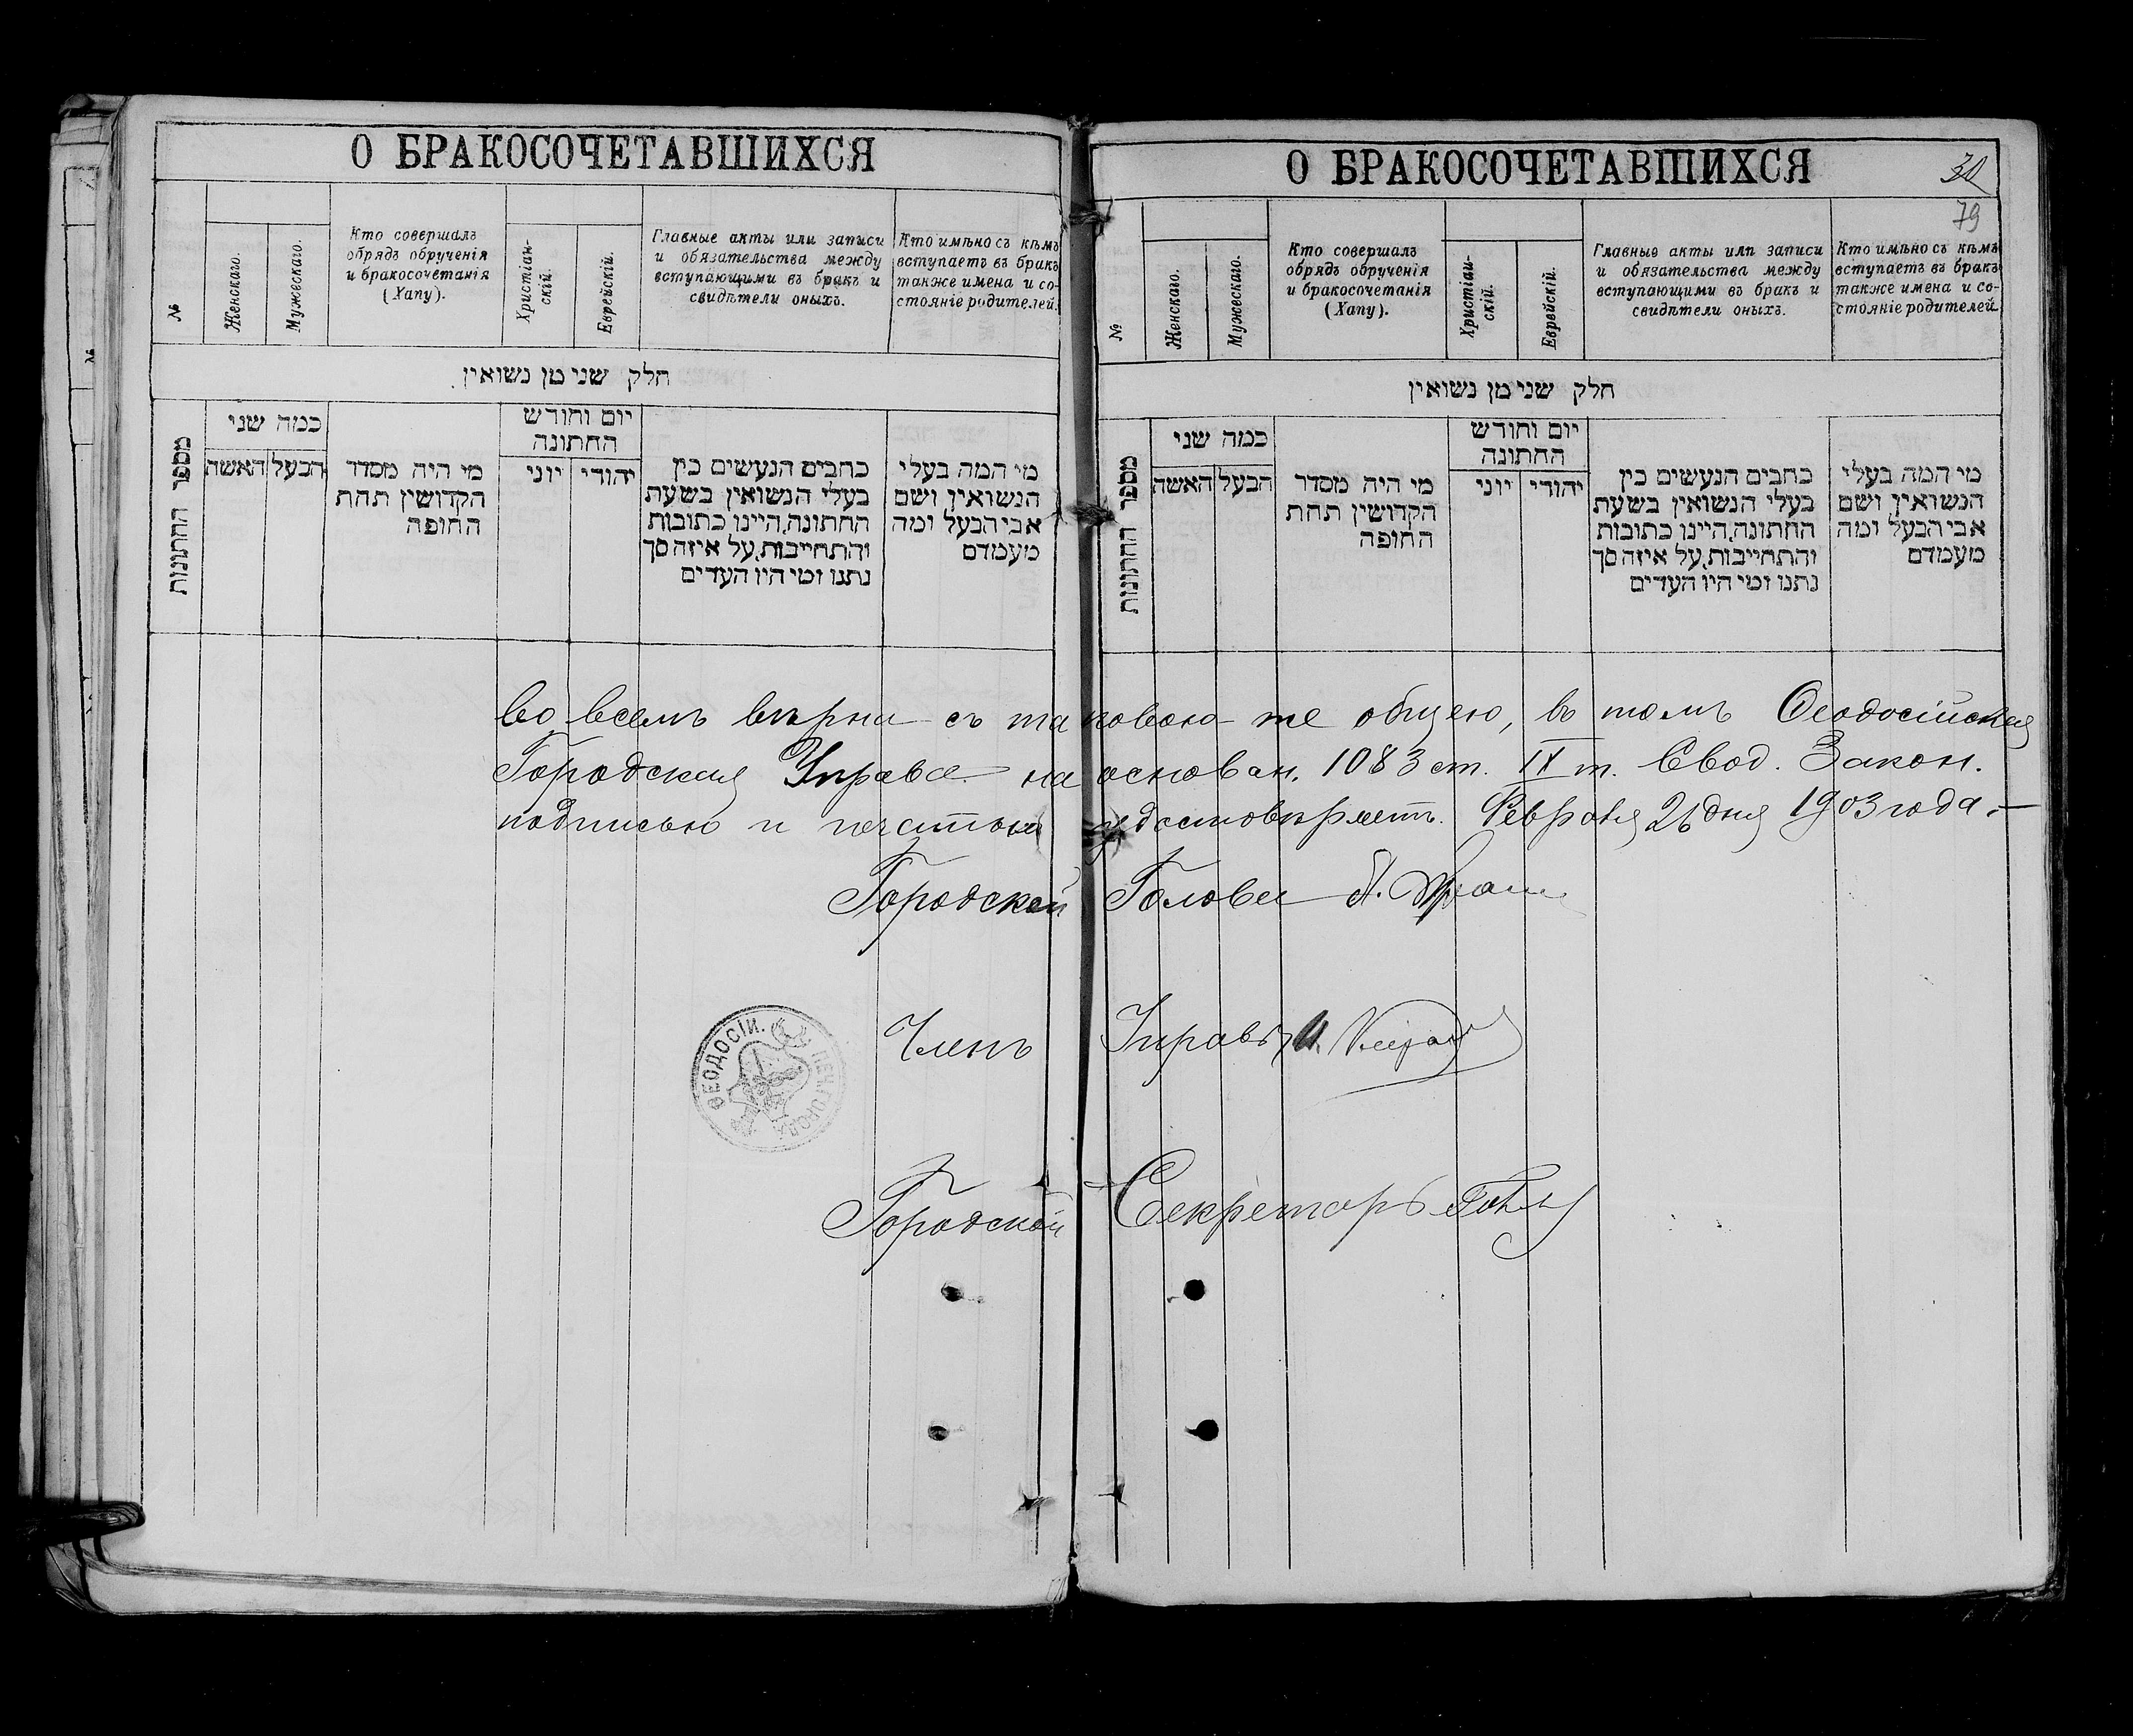 О БРАКОСОЧЕТАВШИХСЯ
№
Женскаго.
Мужескаго.
Кто совершалъ
обрядъ обрученія
и бракосочетанія
(Хапу).
Христіан-
скій.
Еврейскій.
Главные акты или записи
и обязательства между
вступающими въ бракъ и
свидѣтели оныхъ.
Кто имѣно съ кѣмъ
вступаетъ въ бракъ
также имена и со-
стояніе родителей.
חלק שני מן נשואין
מספר החתונות
כמה שני
האשה
הבעל
מי היה מסדר
הקדושין תחת
החופה
יום וחודש
החתונה
יוני
יהודי
כתבים הנעשים בין
בעלי הנשואין בשעת
החתונה, היינו כתובות
והתחייבות, על איזה סך
נתנו ומי היו העדים
מי המה בעלי
הנשואין ושם
אבי הבעל ומה
מעמדם
О БРАКОСОЧЕТАВШИХСЯ
30
79
№
Женскаго.
Мужескаго.
Кто совершалъ
обрядъ обрученія
и бракосочетанія
(Хапу).
Христіан-
скій.
Еврейскій.
Главные акты или записи
и обязательства между
вступающими въ бракъ и
свидѣтели оныхъ.
Кто имѣно съ кѣмъ
вступаетъ въ бракъ
также имена и со-
стояніе родителей.
חלק שני מן נשואין
מספר החתונות
כמה שני
האשה
הבעל
מי היה מסדר
הקדושין תחת
החופה
יום וחודש
החתונה
יוני
יהודי
כתבים הנעשים בין
בעלי הנשואין בשעת
החתונה, היינו כתובות
והתחייבות, על איזה סך
נתנו ומי היו העדים
מי המה בעלי
הנשואין ושם
אבי הבעל ומה
מעמדם
во всемъ вѣрна съ таковою же общею, въ томъ Ѳеодосійская
Городская Управа на основан. 1083 ст. IX т. Свод. Закон.
подписью и печатью удостовѣряетъ. Февраля 26 дня 1903 года.—
Городской Голова
Членъ Управы
ПЕЧ. ГОРОДА ѲЕОДОСІИ.
Городской Секретарь